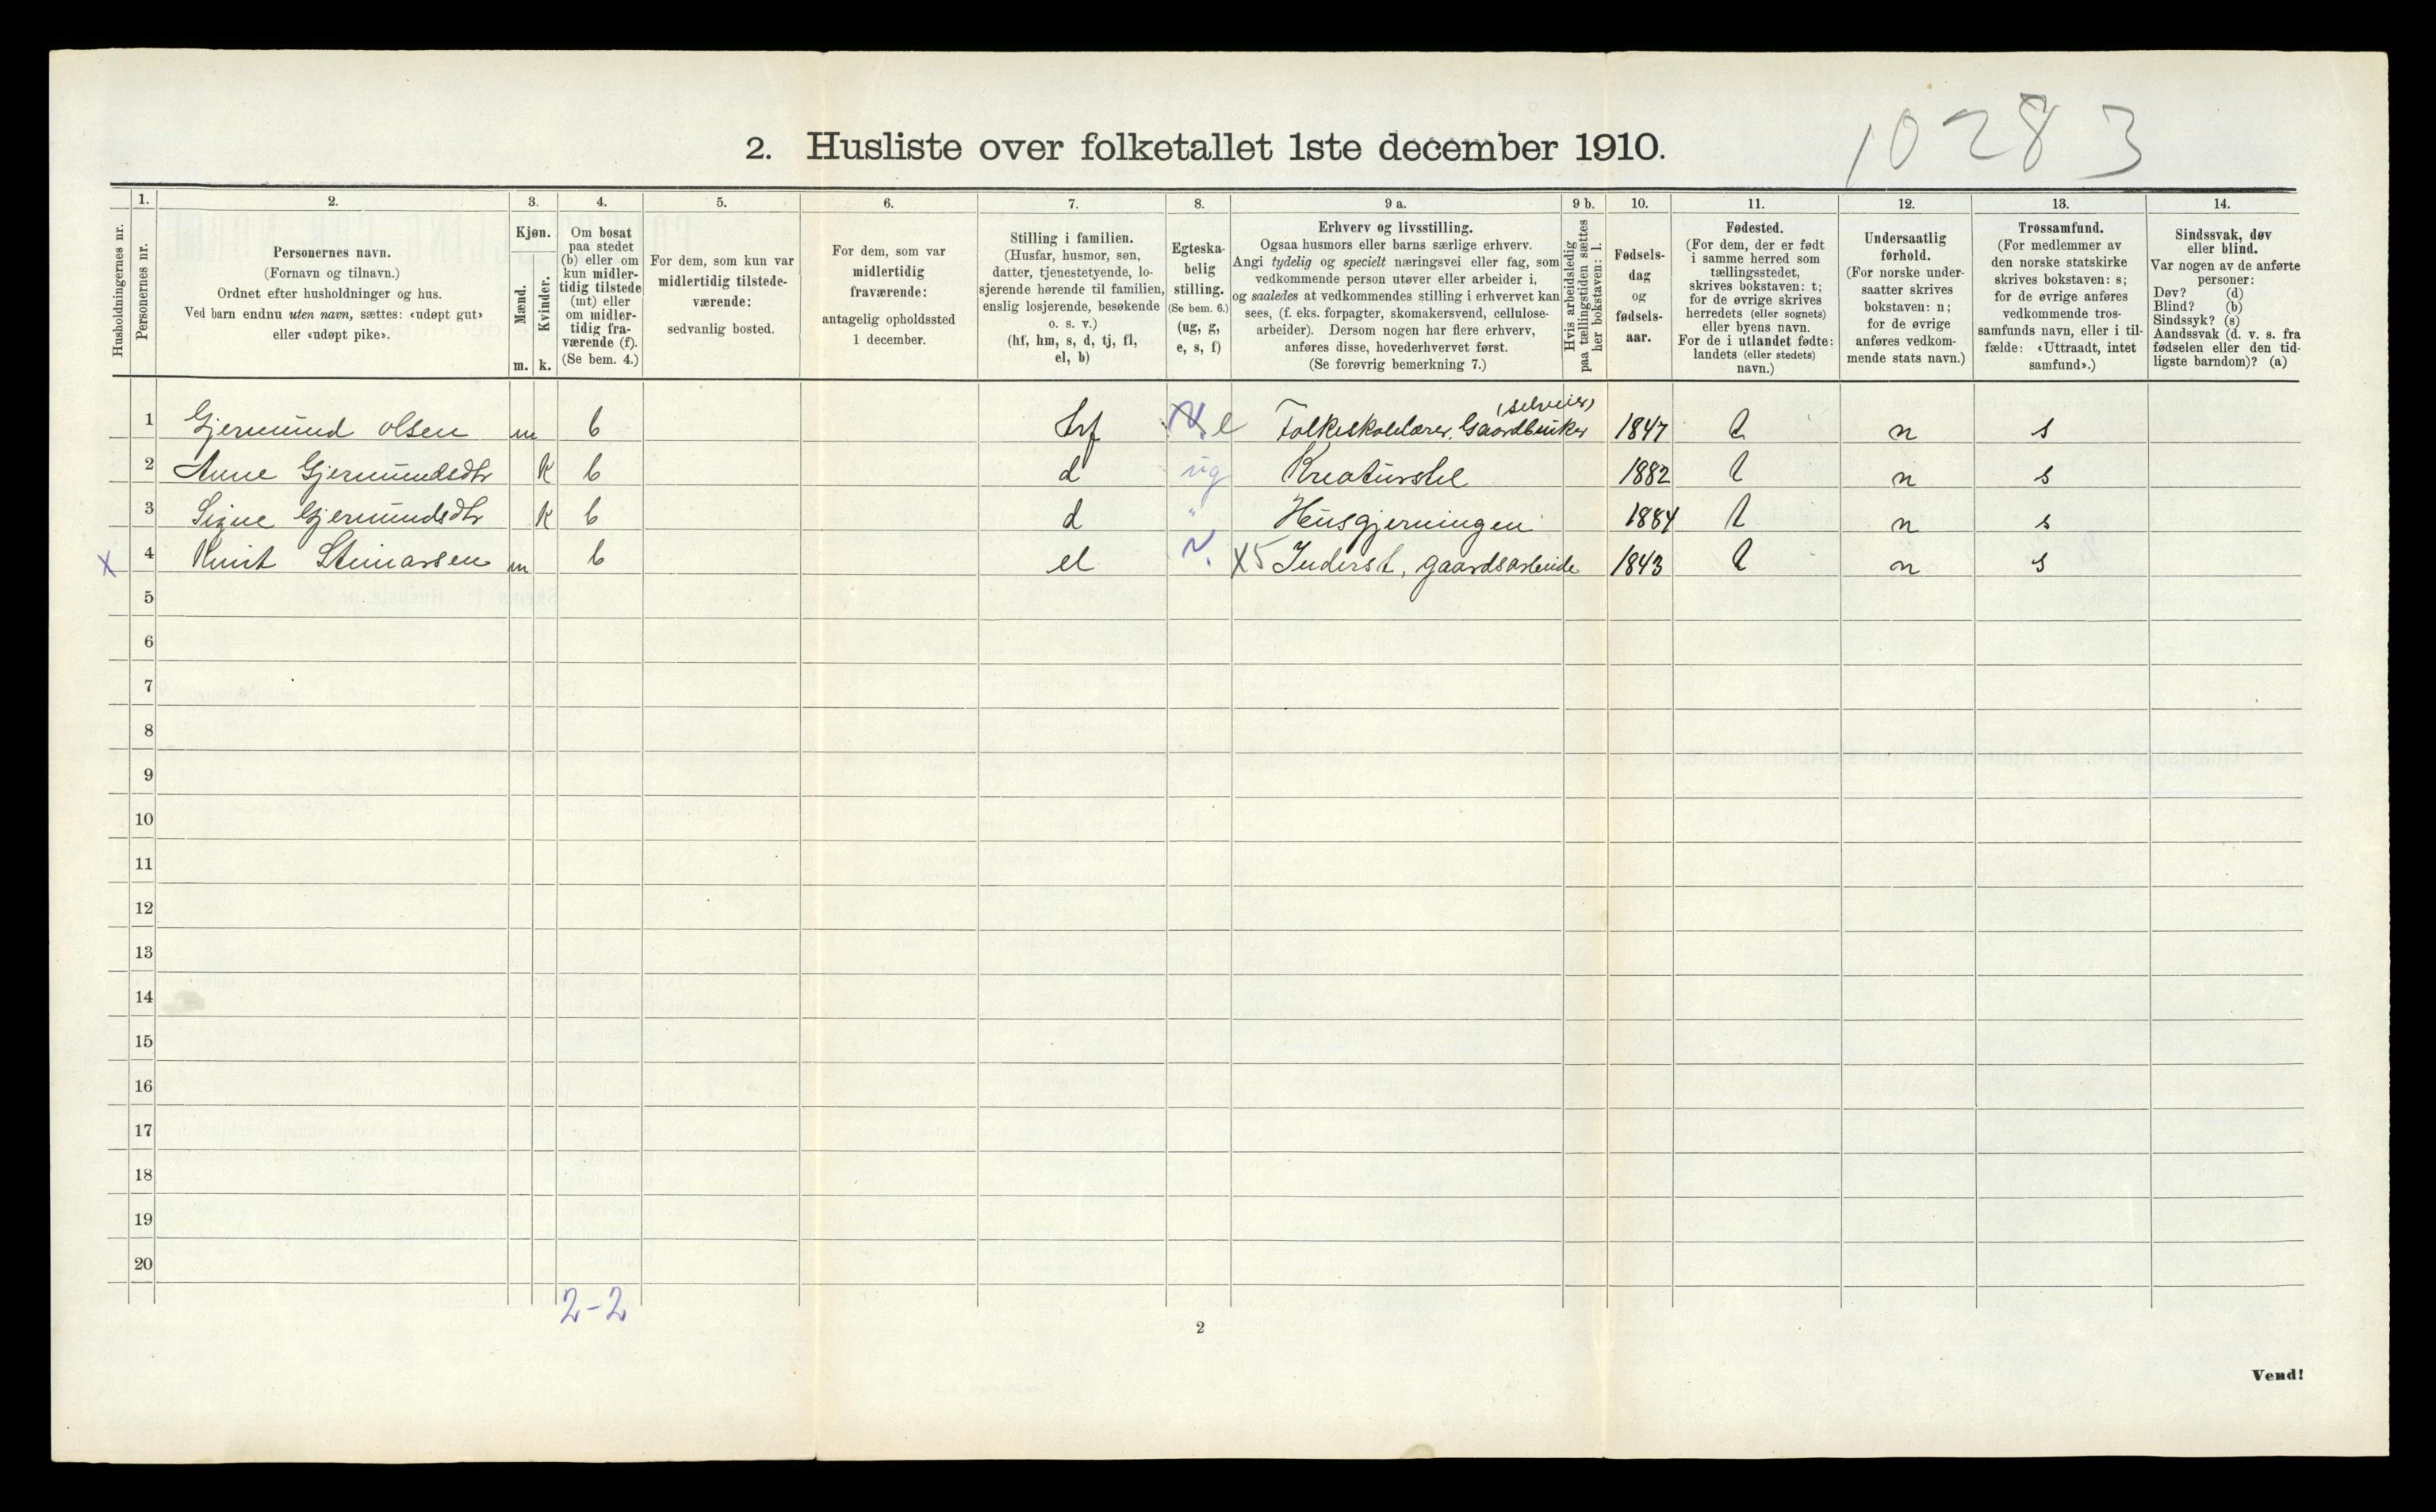 10283
2. Husliste over folketallet 1ste december 1910.
Husholdningernes nr.
1.
Personernes nr.
2.
Personernes navn.
(Fornavn og tilnavn.)
Ordnet efter husholdninger og hus.
Ved barn endnu uten navn, sættes: «udøpt gut»
eller «udøpt pike».
3.
Kjøn.
Mænd.
Kvinder.
m.
k.
4.
Om bosat
paa stedet
(b) eller om
kun midler-
tidig tilstede
(mt) eller
om midler-
tidig fra-
værende (f).
(Se bem. 4.)
5.
For dem, som kun var
midlertidig tilstede-
værende:
sedvanlig bosted.
6.
For dem, som var
midlertidig
fraværende:
antagelig opholdssted
1 december.
7.
Stilling i familien.
(Husfar, husmor, søn,
datter, tjenestetyende, lo-
sjerende hørende til familien,
enslig losjerende, besøkende
o. s. v.)
(hf, hm, s, d, tj, fl,
el, b)
8.
Egteska-
belig
stilling.
(Se bem. 6.)
(ug, g,
e, s, f)
9 a.
Erhverv og livsstilling.
Ogsaa husmors eller barns særlige erhverv.
Angi tydelig og specielt næringsvei eller fag, som
vedkommende person utøver eller arbeider i,
og saaledes at vedkommendes stilling i erhvervet kan
sees, (f. eks. forpagter, skomakersvend, cellulose-
arbeider). Dersom nogen har flere erhverv,
anføres disse, hovederhvervet først.
(Se forøvrig bemerkning 7.)
9 b.
Hvis arbeidsledig
paa tællingstiden sættes
her bokstaven: l.
10.
Fødsels-
dag
og
fødsels-
aar.
11.
Fødested.
(For dem, der er født
i samme herred som
tællingsstedet,
skrives bokstaven: t;
for de øvrige skrives
herredets (eller sognets)
eller byens navn.
For de i utlandet fødte:
landets (eller stedets)
navn.)
12.
Undersaatlig
forhold.
(For norske under-
saatter skrives
bokstaven: n;
for de øvrige
anføres vedkom-
mende stats navn.)
13.
Trossamfund.
(For medlemmer av
den norske statskirke
skrives bokstaven: s;
for de øvrige anføres
vedkommende tros-
samfunds navn, eller i til-
fælde: «Uttraadt, intet
samfund».)
14.
Sindssvak, døv
eller blind.
Var nogen av de anførte
personer:
Døv? (d)
Blind? (b)
Sindssyk? (s)
Aandssvak (d. v. s. fra
fødselen eller den tid-
ligste barndom)? (a)
(selveier)
1 Gjermund Olsen m b hf e Folkeskolelærer, Gaardbruker 1847 t n s
2 Anne Gjermundsdtr k b d ug Kreaturstel 1882 t n s
3 Signe Gjermundsdtr k b d " Husgjerningen 1884 t n s
x 4 Knut Steinarssen m b el X5 Inderst, gaardsarbeide 1843 t n s
5
6
7
8
9
10
11
12
13
14
15
16
17
18
19
20
2-2
2
Vend!